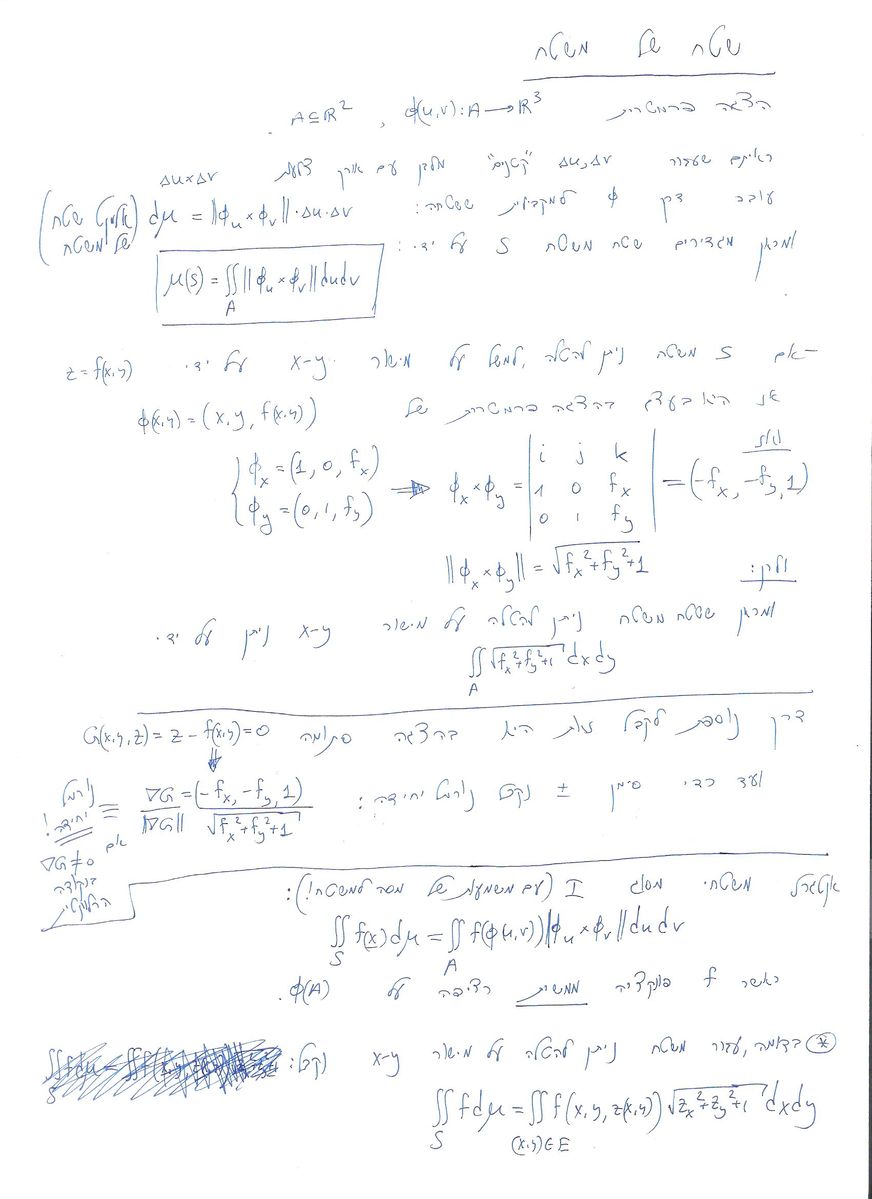 שטח של משטח
הצגה פרמטרית ϕ(u,v): A → ℝ³ , A ⊆ ℝ² .
ראיתם שעבור Δu, Δv "קטנים" מלבן עם אורך צלעות Δu×Δv
עובר דרך ϕ למקבילית ששטחה: dμ = ||ϕ_u × ϕ_v||·Δu·Δv (אלמנט שטח של משטח)
ומכאן מגדירים שטח משטח S על ידי:
μ(S) = ∬_A ||ϕ_u × ϕ_v|| du dv
- אם S משטח ניתן להטלה, למשל על מישור x-y על ידי z = f(x,y)
אז היא בעצם בהצגה פרמטרית של ϕ(x,y) = (x, y, f(x,y))
ואז
{ ϕ_x = (1, 0, f_x)
ϕ_y = (0, 1, f_y) ⇒ ϕ_x × ϕ_y = | i j k ; 1 0 f_x ; 0 1 f_y | = (-f_x, -f_y, 1)
ולכן: ||ϕ_x × ϕ_y|| = √(f_x² + f_y² + 1)
ומכאן ששטח משטח ניתן להטלה על מישור x-y ניתן על ידי
∬_A √(f_x² + f_y² + 1) dx dy
דרך נוספת לקבל זאת היא בהצגה סתומה G(x,y,z) = z - f(x,y) = 0
⇓
ועד כדי סימן ± נקבל נורמל יחידה: ∇G/||∇G|| = (-f_x, -f_y, 1)/√(f_x² + f_y² + 1)
≡ נורמל
יחידה!
אם
∇G ≠ 0
בנקודה
הרלוונטית
אינטגרל משטחי מסוג I (עם משמעות של מסה למשטח!):
∬_S f(x) dμ = ∬_A f(ϕ(u,v)) ||ϕ_u × ϕ_v|| du dv
כאשר f פונקציה ממשית רציפה על ϕ(A).
⊛ בדומה, עבור משטח ניתן להטלה על מישור x-y נקבל:
∬_S f dμ = ∬_{(x,y)∈E} f(x, y, z(x,y)) √(z_x² + z_y² + 1) dx dy